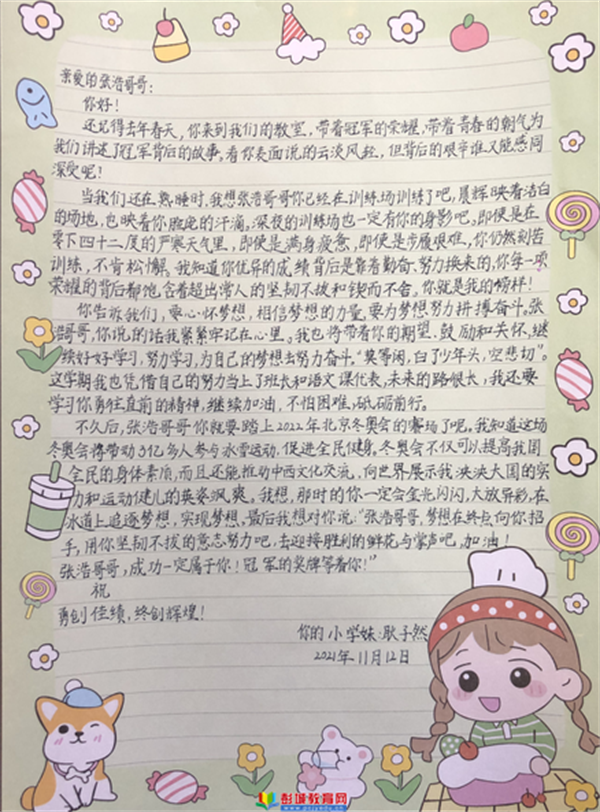 亲爱的张浩哥哥：
你好！
还记得去年春天，你来到我们的教室，带着冠军的荣耀，带着青春的朝气为
我们讲述了冠军背后的故事。看你表面说的云淡风轻，但背后的艰辛谁又能感同
深受呢！
当我们还在熟睡时，我想张浩哥哥你已经在训练场训练了吧，晨辉映着洁白
的场地，也映着你脸庞的汗滴。深夜的训练场也一定有你的身影吧。即使是在
零下四十二度的严寒天气里，即使是满身疲惫，即使是步履艰难，你仍然刻苦
训练，不肯松懈。我知道你优异的成绩背后是靠着勤奋、努力换来的，你每一项
荣耀的背后都饱含着超出常人的坚韧不拔和锲而不舍。你就是我的榜样！
你告诉我们，要心怀梦想，相信梦想的力量，要为梦想努力拼搏奋斗。张
浩哥哥，你说的话我紧紧牢记在心里。我也将带着你的期望、鼓励和关怀，继
续好好学习，努力学习，为自己的梦想去努力奋斗。“莫等闲，白了少年头，空悲切”。
这学期我也凭借自己的努力当上了班长和语文课代表，未来的路很长，我还要
学习你勇往直前的精神，继续加油，不怕困难，砥砺前行。
不久后，张浩哥哥你就要踏上2022年北京冬奥会的赛场了呢。我知道这场
冬奥会将带动3亿多人参与冰雪运动，促进全民健身。冬奥会不仅可以提高我国
全民的身体素质，而且还能推动中西文化交流，向世界展示我泱泱大国的实
力和运动健儿的英姿飒爽。我想，那时的你一定会金光闪闪，大放异彩，在
冰道上追逐梦想，实现梦想。最后我想对你说：“张浩哥哥，梦想在终点向你招
手，用你坚韧不拔的意志努力吧，去迎接胜利的鲜花与掌声吧，加油！
张浩哥哥，成功一定属于你！冠军的奖牌等着你！”
祝
勇创佳绩，终创辉煌！
你的小学妹：耿子然
2021年11月12日
彭城教育网